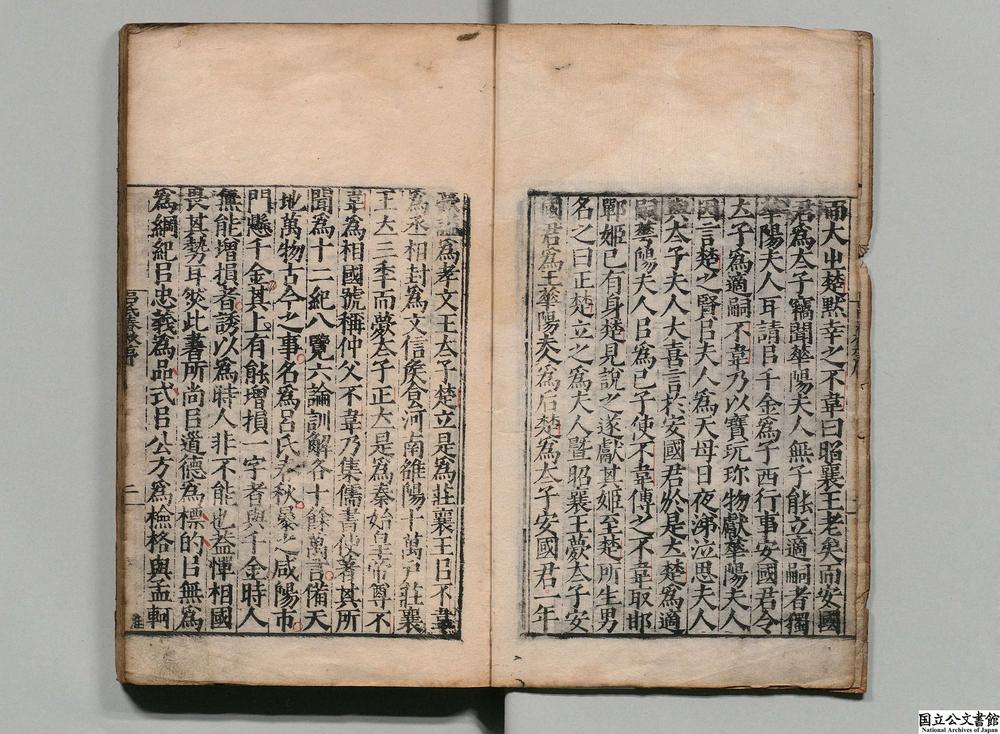 而大出楚默幸之不韋曰昭襄王老矣而安國
君為太子竊聞華陽夫人無子能立適嗣者獨
華陽夫人耳請㠯千金為子西行事安國君令
太子為適嗣不韋乃以寶玩珎物獻華陽夫人
因言楚之賢㠯夫人為天母日夜涕泣思夫人
與太子夫人大喜言於安國君於是立楚為適
嗣華陽夫人㠯為己子使不韋傅之不韋取邯
鄲姬已有身楚見說之遂獻其姬至楚所生男
名之曰正楚立之為夫人曁昭襄王薨太子安
國君為王華陽夫人為后楚為太子安國君一年
薨謚為孝文王太子楚立是為莊襄王㠯不韋
為丞相封為文信矦食河南雒陽十萬戸莊襄
王立三季而薨太子正立是為秦始皇帝尊不
韋為相國號稱仲父不韋乃集儒書使著其所
聞為十二紀八覽六論訓解各十餘萬言備天
地萬物古今之事名為呂氏春秋暴之咸陽市
門懸千金其上有能增損一字者與千金時人
無能增損者誘以為時人非不能也葢憚相國
畏其勢耳然此書所尚㠯道德為標的㠯無為
為綱紀㠯忠義為品式㠯公方為檢格與孟軻
呂氏春秋序
二
国立公文書館
National Archives of Japan